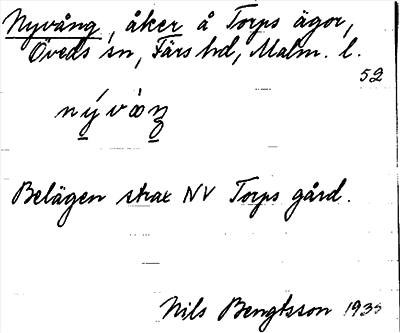 Nyvång, åker å Torps ägor,
Öveds sn, Färs hd, Malm. l.
52
Belägen strax NV Torps gård.
Nils Bengtsson